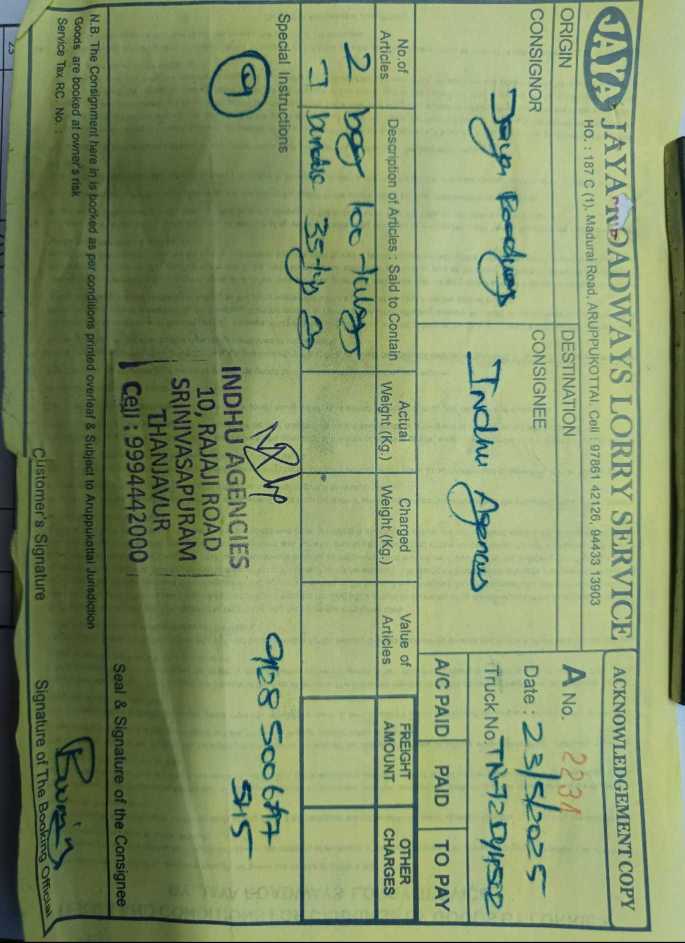 JAYA JAYA ROADWAYS LORRY SERVICE
HO. : 187 C (1), Madurai Road, ARUPPUKOTTAI. Cell : 97861 42126, 94433 13903
ACKNOWLEDGEMENT COPY
A No. 2231
Date : 23/5/2025
Truck No. TN72
ORIGIN
DESTINATION
CONSIGNOR
Jaya Roadways
CONSIGNEE
Indhu Agencies
A/C PAID PAID TO PAY
No.of Articles
Description of Articles : Said to Contain
Actual Weight (Kg.)
Charged Weight (Kg.)
Value of Articles
FREIGHT AMOUNT
OTHER CHARGES
2 bags 100
bundle 35
Special Instructions
9
INDHU AGENCIES
10, RAJAJI ROAD
SRINIVASAPURAM
THANJAVUR
Cell : 9994442000
Seal & Signature of the Consignee
N.B. The Consignment here in is booked as per conditions printed overleaf & Subject to Aruppukottai Jurisdiction
Goods are booked at owner's risk
Service Tax RC. No. :
Customer's Signature
Signature of The Booking Official